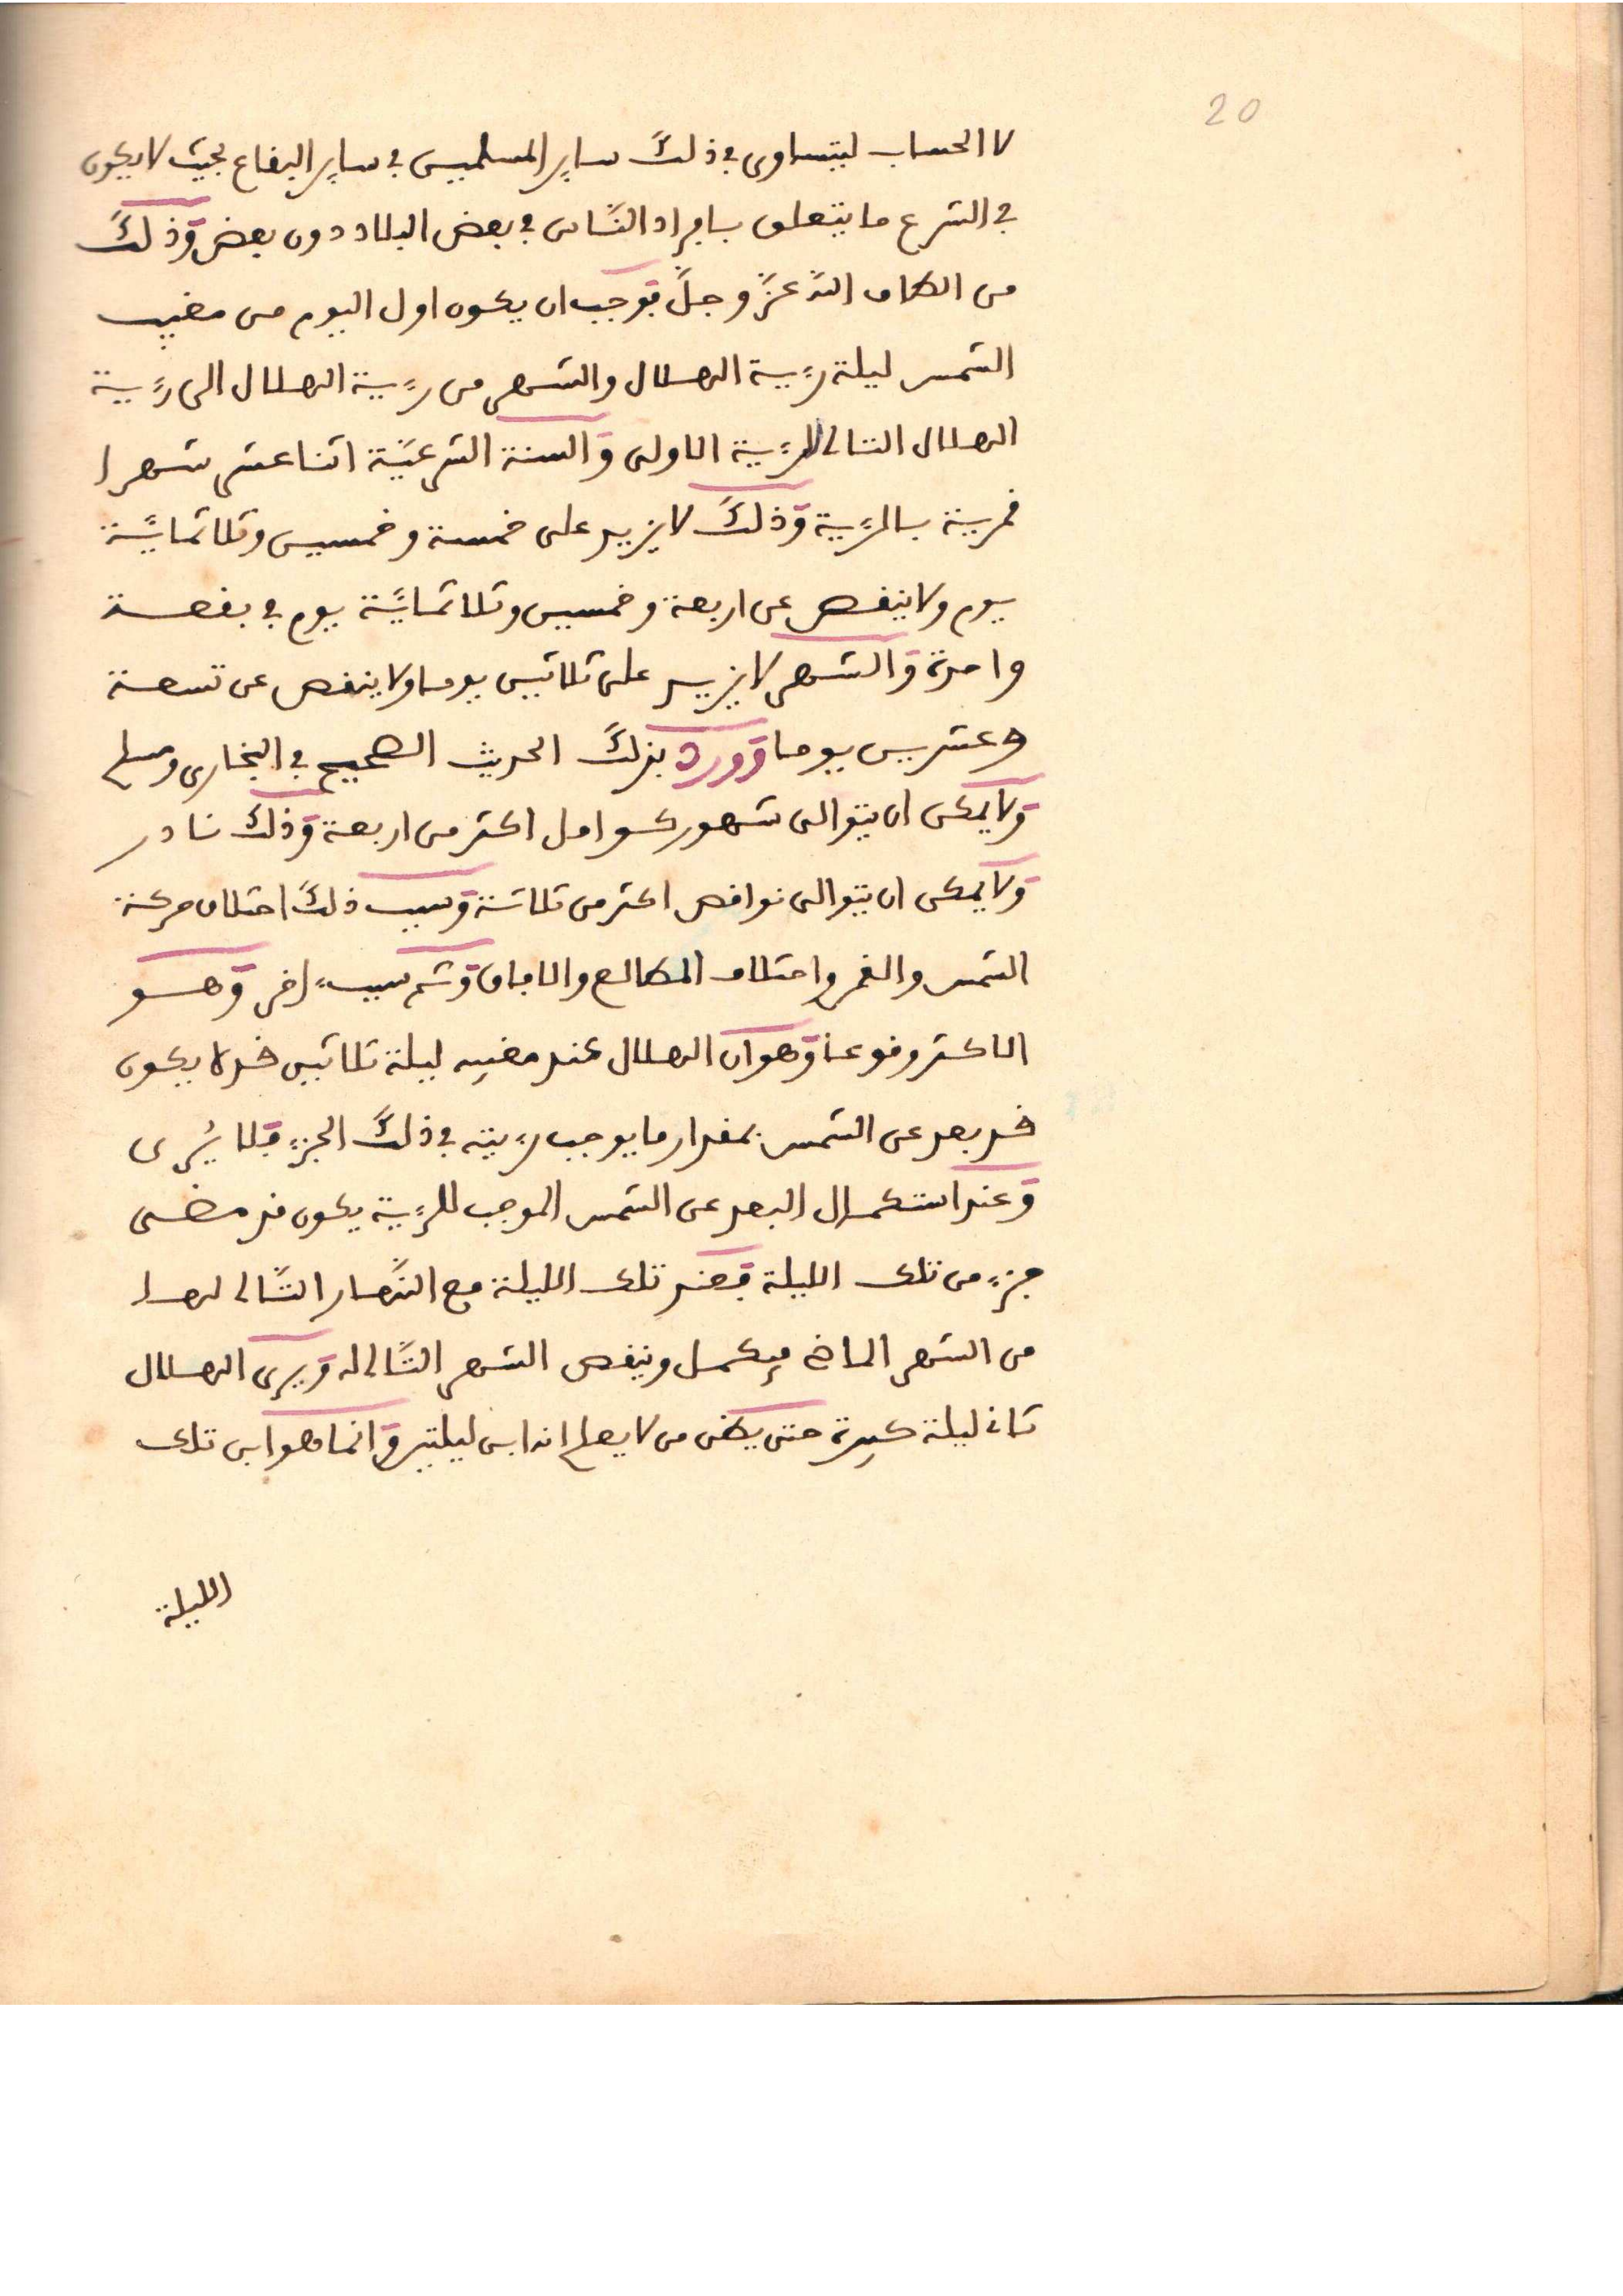 20
لا الحساب ليتساوى في ذلك ساير المسلمين في ساير البقاع بحيث لا يكون
في الشرع ما يتعلق بافراد النّاس في بعض البلاد دون بعض وذلك
من الطاف الله عزّ وجلّ فوجب ان يكون اول اليوم من مغيب
الشمس ليلة رءية الهلال والشهر من رءية الهلال الى رءية
الهلال التالى للرءية الاولى والسنة الشرعيّة اثنا عشر شهرا
قمرية بالرءية وذلك لا يزيد على خمسة وخمسين وثلاثمائة
يوم ولا ينقص عن اربعة وخمسين وثلاثمائة يوم في بقعة
واحدة والشهر لا يزيد على ثلاثين يوما ولا ينقص عن تسعة
وعشرين يوما وورد بذلك الحديث الصحيح في البخارى ومسلم
ولا يمكن ان يتوالى شهور كوامل اكثر من اربعة وذلك نادر
ولا يمكن ان يتوالى نواقص اكثر من ثلاثة وسبب ذلك اختلاف حركة
الشمس والقمر واختلاف المطالع والافاق وثم سبب ءاخر وهو
الاكثر وقوعا وهو ان الهلال عند مغيبه ليلة ثلاثين قد لا يكون
قد بعد عن الشمس بمقدار ما يوجب رءيته في ذلك الجزء فلا يُرى
وعند استكمال البعد عن الشمس الموجب للرءية يكون قد مضى
جزء من تلك الليلة فتعد تلك الليلة مع النّهار التّالى لها
من الشهر الماضى فيكمل وينقص الشهر التّالى له ويرى الهلال
ثانى ليلة كبيرة حتى يظن من لا يعلم انه ابن ليلتين وانما هو ابن تلك
الليلة